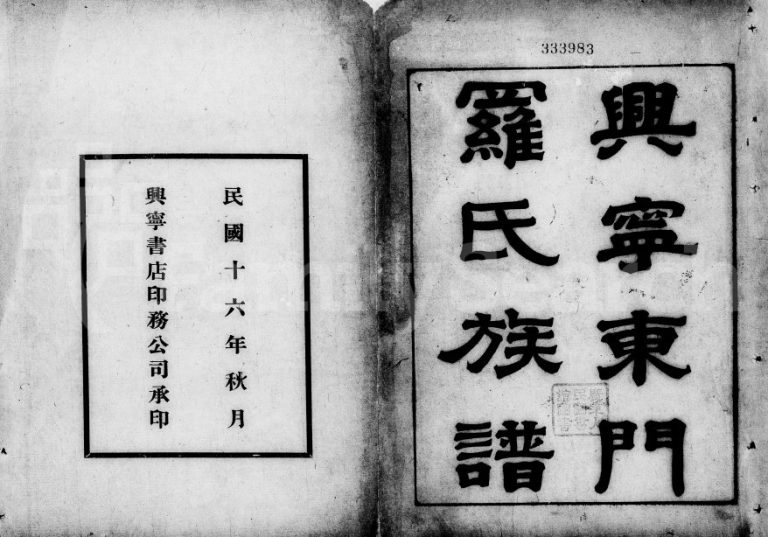 333983
興寧東門
羅氏族譜
民國十六年秋月
興寧書店印務公司承印